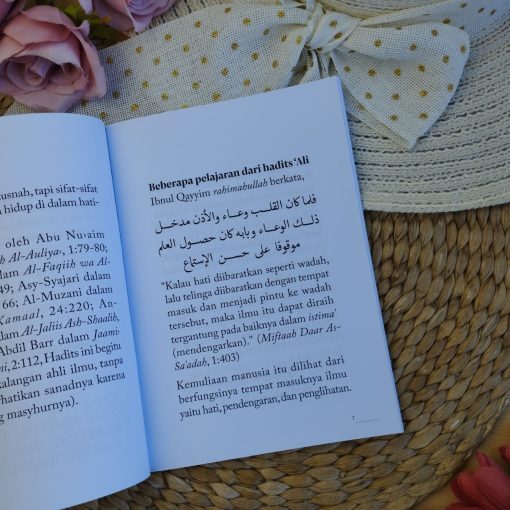 usnah, tapi sifat-sifat
hidup di dalam hati-
oleh Abu Nu›aim
Al-Auliya›, 1:79-80;
lam Al-Faqiih wa Al-
49; Asy-Syajari dalam
66; Al-Muzani dalam
Kamaal, 24:220; An-
lam Al-Jaliis Ash-Shaalih,
Abdil Barr dalam Jaami
2:112, Hadits ini begitu
kalangan ahli ilmu, tanpa
rhatikan sanadnya karena
g masyhurnya).
Beberapa pelajaran dari hadits ‘Ali
Ibnul Qayyim rahimahullah berkata,
فلما كان القلب وعاء والأذن مدخل
ذلك الوعاء وبابه كان حصول العلم
موقوفا على حسن الإستماع
"Kalau hati diibaratkan seperti wadah,
lalu telinga diibaratkan dengan tempat
masuk dan menjadi pintu ke wadah
tersebut, maka ilmu itu dapat diraih
tergantung pada baiknya dalam istima'
(mendengarkan)." (Miftaah Daar As-
Sa'adah, 1:403)
Kemuliaan manusia itu dilihat dari
berfungsinya tempat masuknya ilmu
yaitu hati, pendengaran, dan penglihatan.